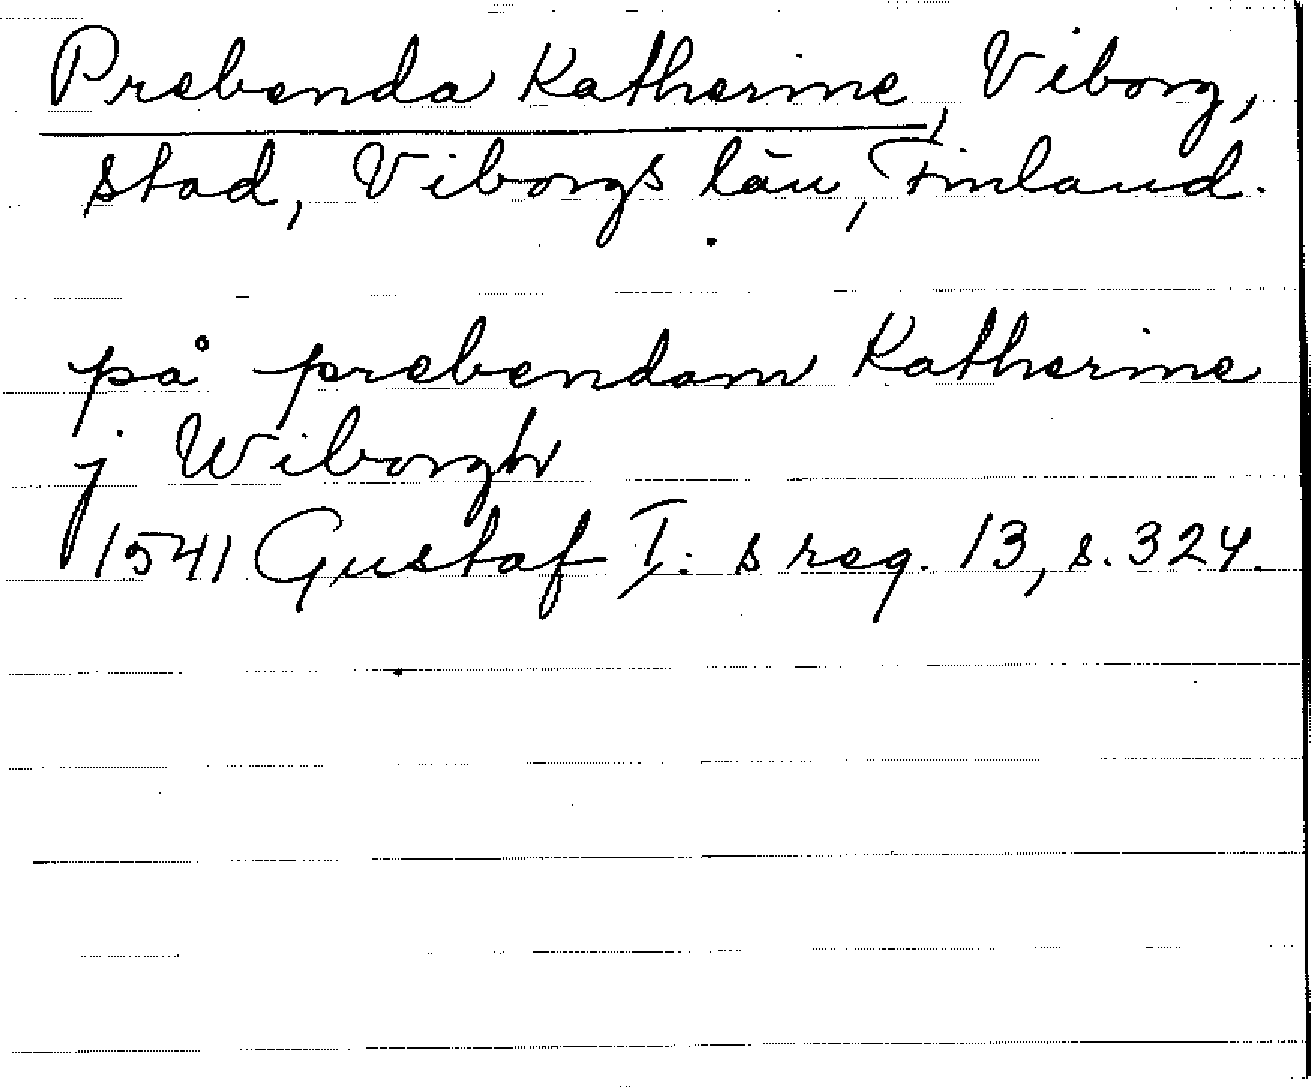 Prebenda Katherine, Viborg,
stad, Viborgs län, Finland.
på prebendam Katherine
j Wiborgh
1541 Gustaf I:s reg. 13, s. 324.